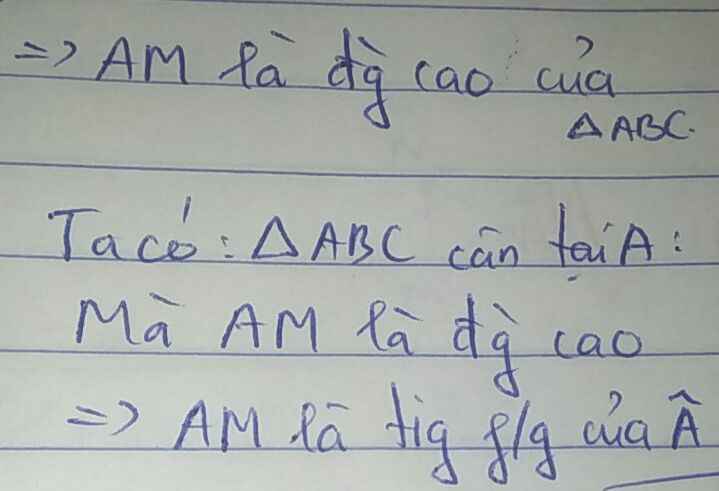 => AM là đg̀ cao của
△ABC.
Ta có: △ABC cân tại A:
Mà AM là đg̀ cao
=> AM là tig p/g của Â